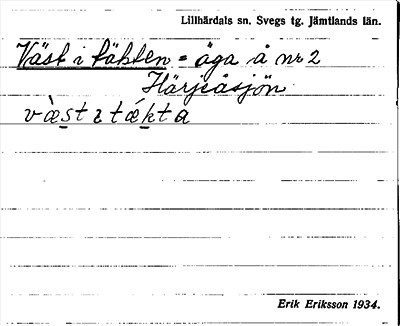 Lillhärdals sn. Svegs tg. Jämtlands län.
Väst i täkten = äga å nr 2
Härjeåsjön
væ̀st ɩ tǽkta
Erik Eriksson 1934.